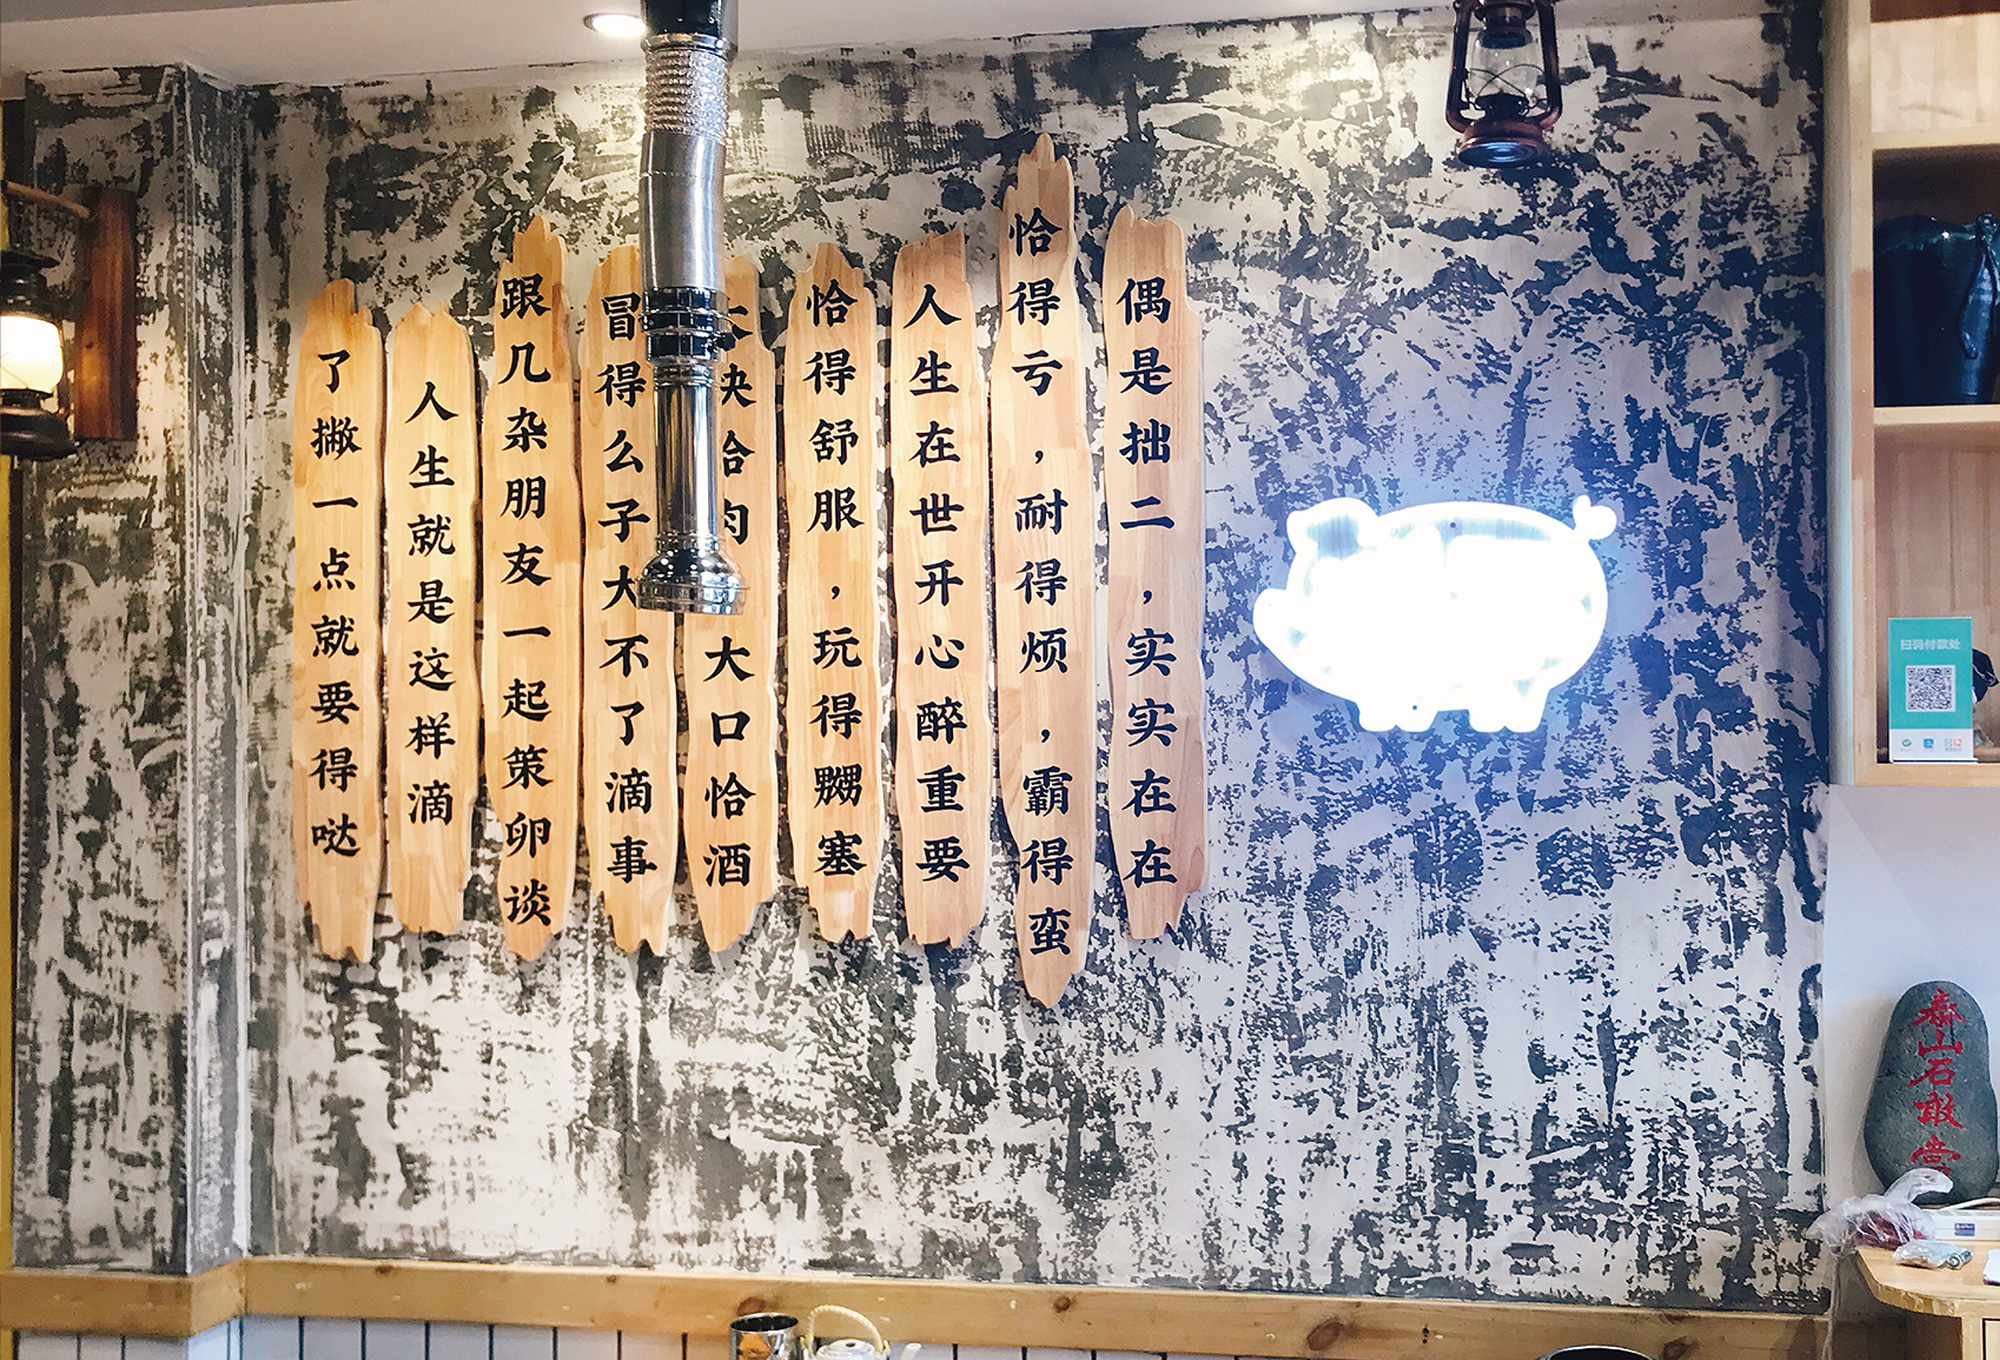 偶是拙二,实实在在
恰得亏,耐得烦,霸得蛮
人生在世开心醉重要
恰得舒服,玩得嬲塞
大口恰酒
冒得么子大不了滴事
跟几杂朋友一起策卵谈
人生就是这样滴
了撇一点就要得哒
扫码付款处
泰山石敢当